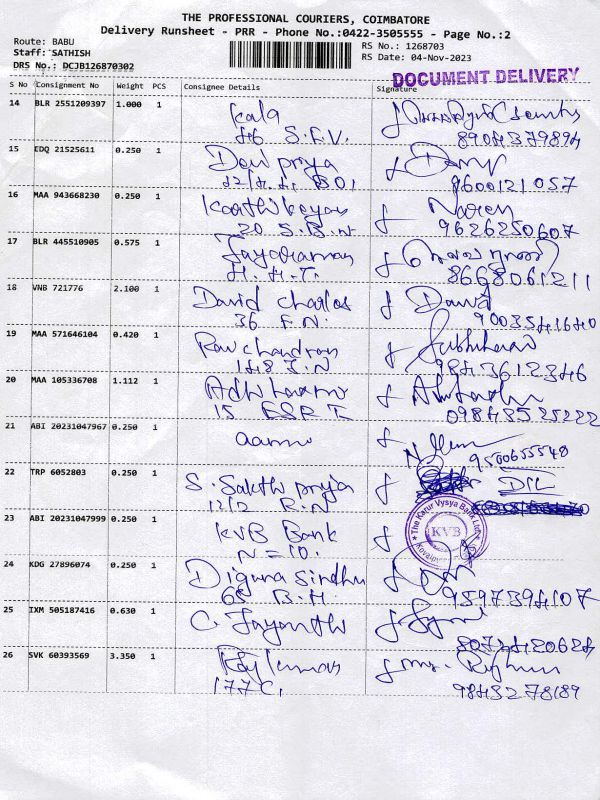 THE PROFESSIONAL COURIERS, COIMBATORE
Delivery Runsheet - PRR - Phone No.:0422-3505555 - Page No.:2
Route: BABU
Staff: SATHISH
DRS No.: DCJB126870302
RS No.: 1268703
RS Date: 04-Nov-2023
DOCUMENT DELIVERY
S No Consignment No Weight PCS Consignee Details Signature
14 BLR 2551209397 1.000 1 Kala
46 S.F.V. 8904379894
15 EDQ 21525611 0.250 1 Devi priya
9600121057
16 MAA 943668230 0.250 1 Karthikeyan Naren
20 S.B.N 9626250607
17 BLR 445510905 0.575 1 Jayaraman
H.H.T. 8668061211
18 VNB 721776 2.100 1 David Charles David
36 F.N. 9003541640
19 MAA 571646104 0.420 1 Ravichandran
148 I.N 9843612346
20 MAA 105336708 1.112 1
15 ESRI 09843525222
21 ABI 20231047967 0.250 1
9500655548
22 TRP 6052803 0.250 1 S. Sakthi priya
12/2 R.N
23 ABI 20231047999 0.250 1 KVB Bank
N=10.
The Karur Vysya Bank Ltd
KVB
24 KDG 27896074 0.250 1 Diguna Sindhu
65 B.H. 9597394107
25 IXM 505187416 0.630 1 C. Jayanthi
8072420624
26 SVK 60393569 3.350 1 Rajkumar
177C. 9843278189